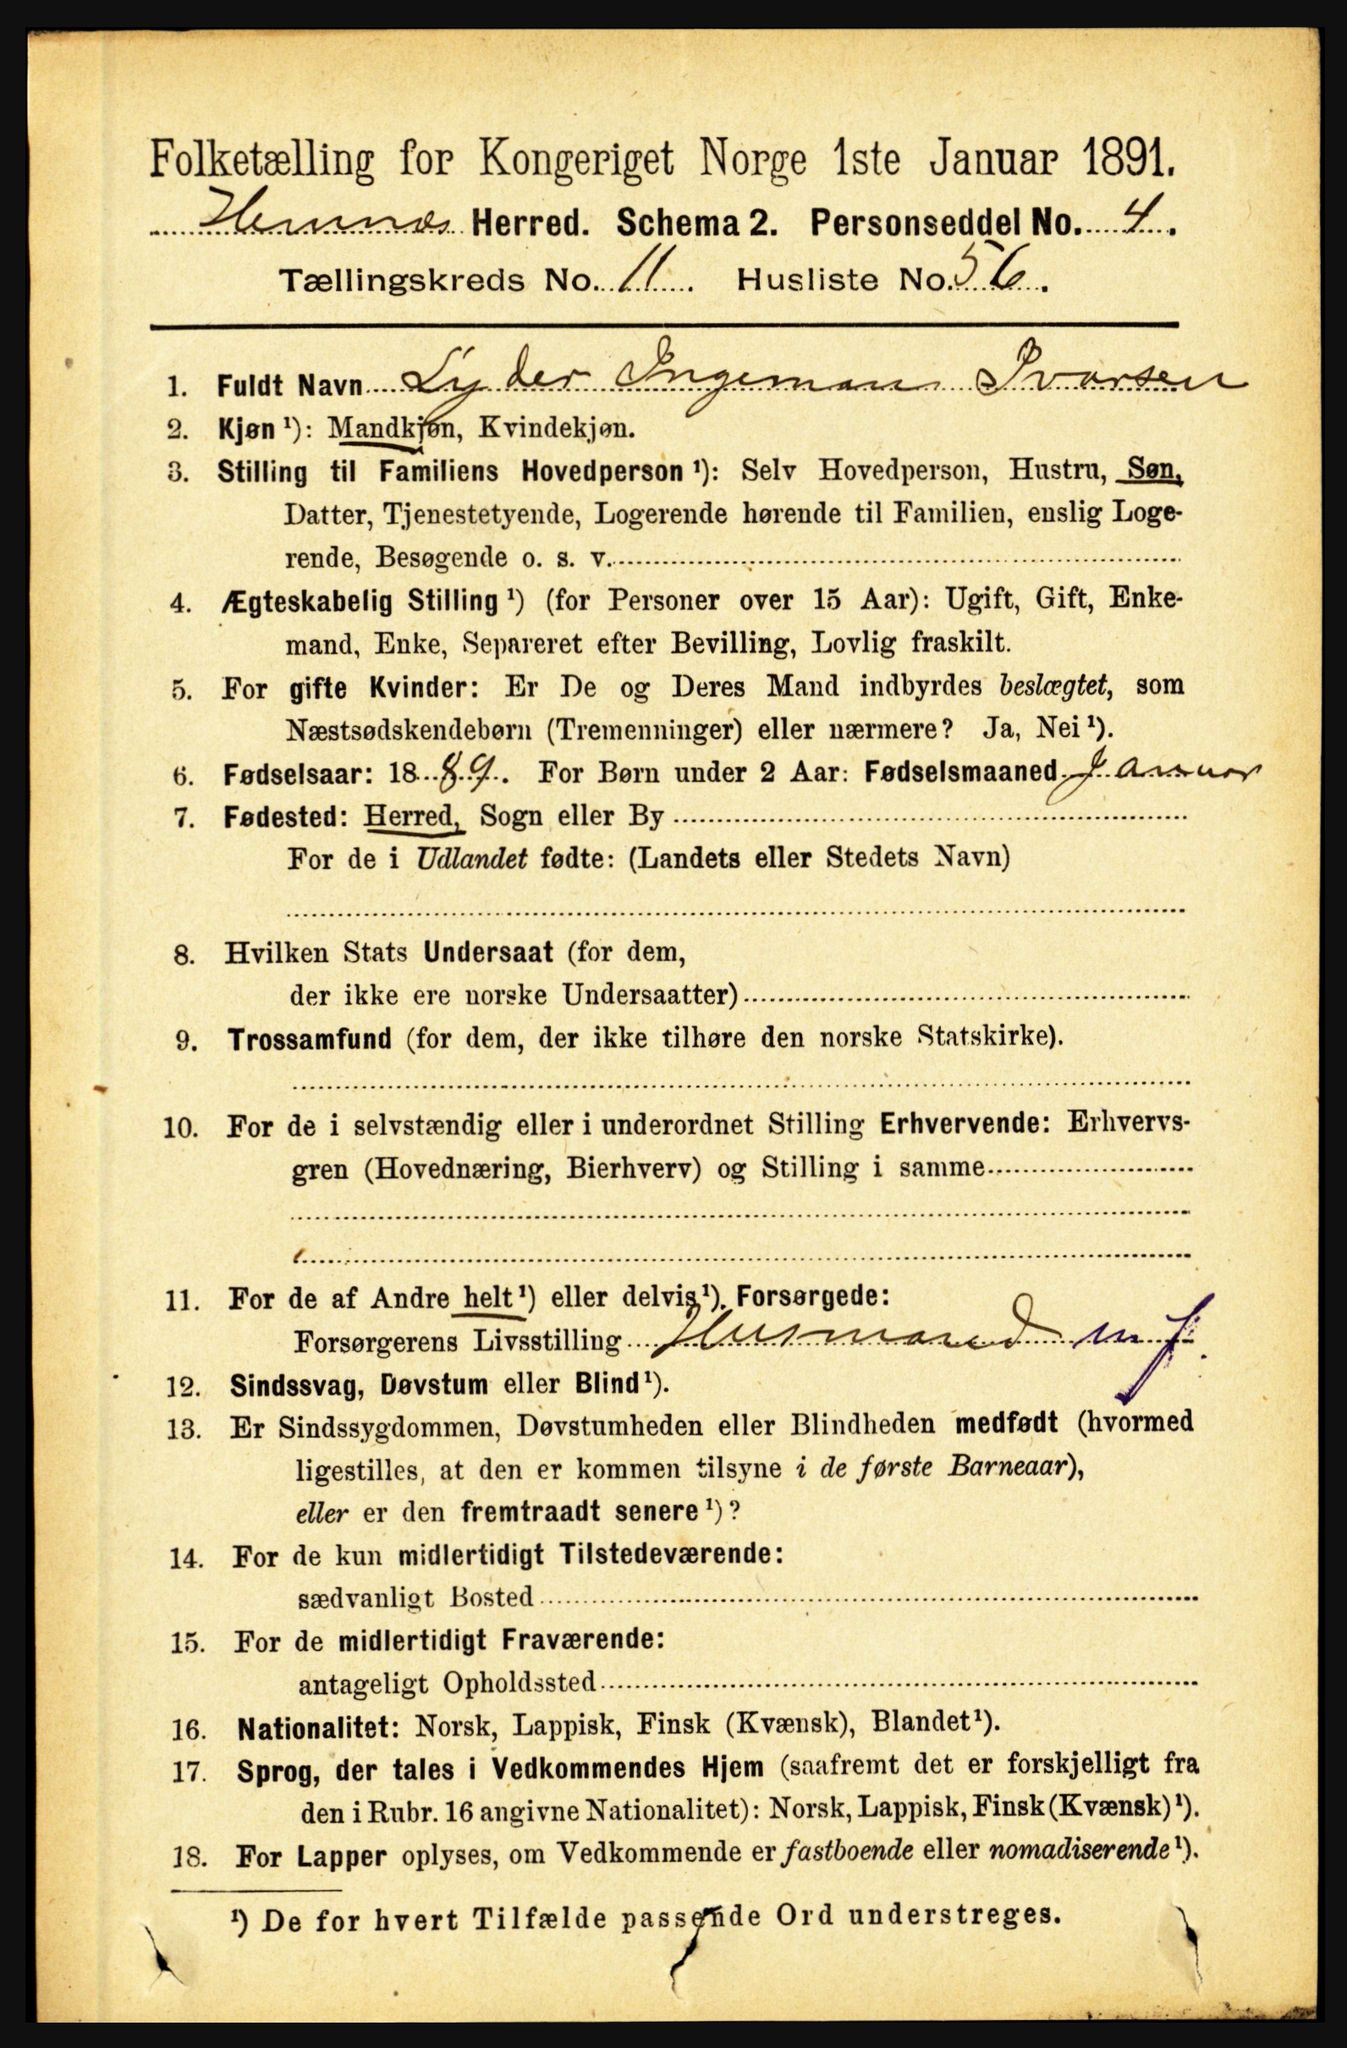 Folketælling for Kongeriget Norge 1ste Januar 1891.
Hemnæs Herred. Schema 2. Personseddel No. 4.
Tællingskreds No. 11. Husliste No. 56.
1. Fuldt Navn Lyder Ingeman Ivarsen
2. Kjøn ¹): Mandkjøn, Kvindekjøn.
3. Stilling til Familiens Hovedperson ¹): Selv Hovedperson, Hustru, Søn,
Datter, Tjenestetyende, Logerende hørende til Familien, enslig Loge-
rende, Besøgende o. s. v.
4. Ægteskabelig Stilling ¹) (for Personer over 15 Aar): Ugift, Gift, Enke-
mand, Enke, Separeret efter Bevilling, Lovlig fraskilt.
5. For gifte Kvinder: Er De og Deres Mand indbyrdes beslægtet, som
Næstsødskendebørn (Tremenninger) eller nærmere? Ja, Nei ¹).
6. Fødselsaar: 1889. For Børn under 2 Aar: Fødselsmaaned Januar
7. Fødested: Herred, Sogn eller By
For de i Udlandet fødte: (Landets eller Stedets Navn)
8. Hvilken Stats Undersaat (for dem,
der ikke ere norske Undersaatter)
9. Trossamfund (for dem, der ikke tilhøre den norske Statskirke).
10. For de i selvstændig eller i underordnet Stilling Erhvervende: Erhvervs-
gren (Hovednæring, Bierhverv) og Stilling i samme
11. For de af Andre helt ¹) eller delvis ¹). Forsørgede:
Forsørgerens Livsstilling Husmand m j.
12. Sindssvag, Døvstum eller Blind ¹).
13. Er Sindssygdommen, Døvstumheden eller Blindheden medfødt (hvormed
ligestilles, at den er kommen tilsyne i de første Barneaar),
eller er den fremtraadt senere ¹)?
14. For de kun midlertidigt Tilstedeværende:
sædvanligt Bosted
15. For de midlertidigt Fraværende:
antageligt Opholdssted
16. Nationalitet: Norsk, Lappisk, Finsk (Kvænsk), Blandet ¹).
17. Sprog, der tales i Vedkommendes Hjem (saafremt det er forskjelligt fra
den i Rubr. 16 angivne Nationalitet): Norsk, Lappisk, Finsk (Kvænsk) ¹).
18. For Lapper oplyses, om Vedkommende er fastboende eller nomadiserende ¹).
¹) De for hvert Tilfælde passende Ord understreges.